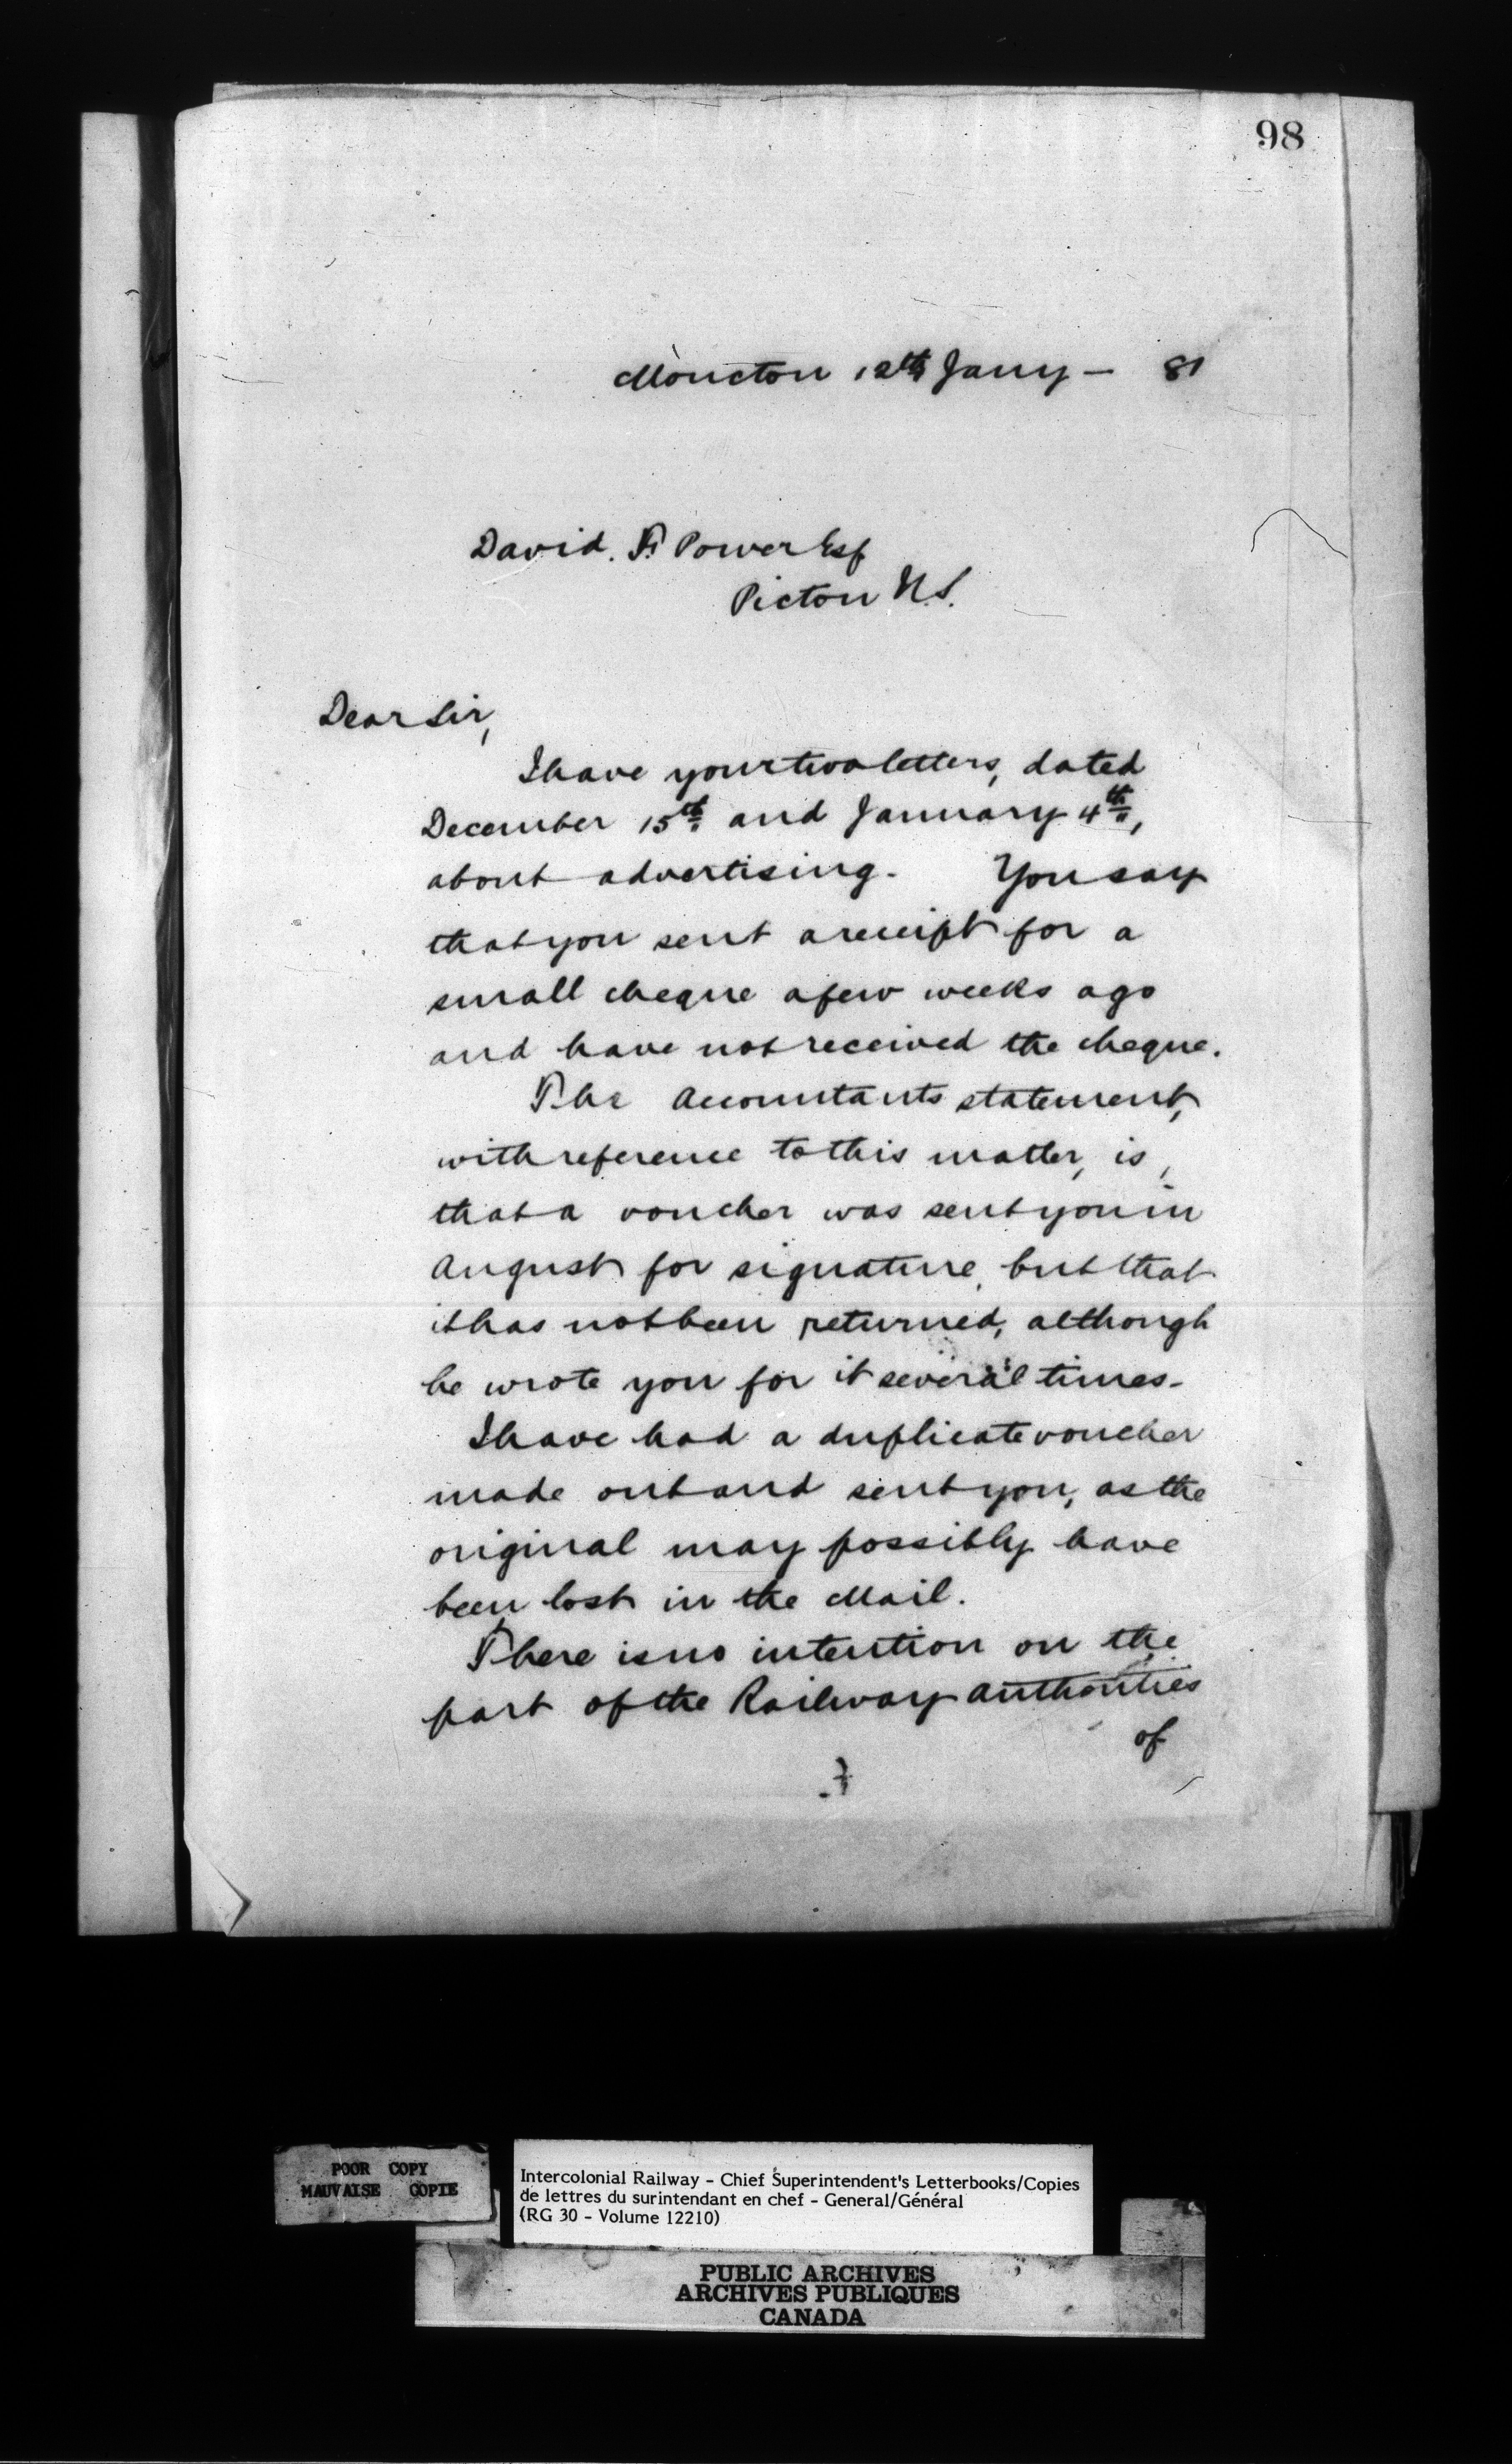 98
Moncton 12th Jany – 81
David. F. Power Esq
Pictou N.S.
Dear Sir,
I have your two letters, dated
December 15th and January 4th,
about advertising. You say
that you sent a receipt for a
small cheque a few weeks ago
and have not received the cheque.
The Accountants statement,
with reference to this matter, is,
that a voucher was sent you in
August for signature, but that
it has not been returned, although
he wrote you for it several times.
I have had a duplicate voucher
made out and sent you, as the
original may possibly have
been lost in the Mail.
There is no intention on the
part of the Railway authorities
of
POOR COPY
MAUVAISE COPIE
Intercolonial Railway - Chief Superintendent's Letterbooks/Copies
de lettres du surintendant en chef - General/Général
(RG 30 - Volume 12210)
PUBLIC ARCHIVES
ARCHIVES PUBLIQUES
CANADA